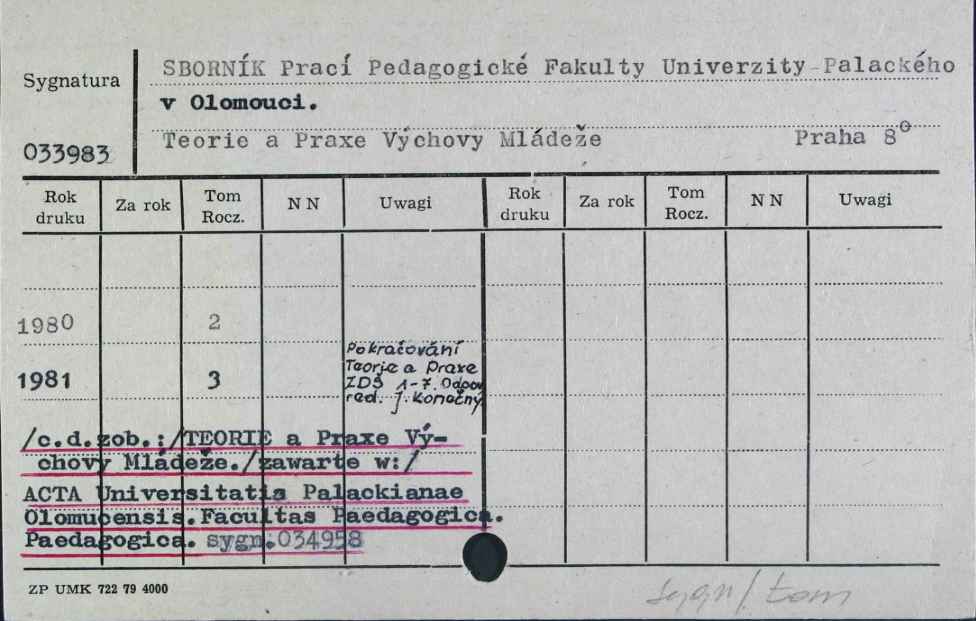 Sygnatura
SBORNÍK Prací Pedagogické Fakulty Univerzity Palackého
v Olomouci.
033983
Teorie a Praxe Výchovy Mládeže Praha 8°
Rok druku Za rok Tom Rocz. NN Uwagi Rok druku Za rok Tom Rocz. NN Uwagi
1980 2
1981 3
Pokračování
Teorje a Praxe
ZDŠ 1-7. Odpov
red. J. Konečný
/c.d.zob.:/TEORIE a Praxe Vý-
chovy Mládeže./zawarte w:/
ACTA Universitatis Palackianae
Olomucensis.Facultas Paedagogica.
Paedagogica. sygn.034958
ZP UMK 722 79 4000
sygn/tom